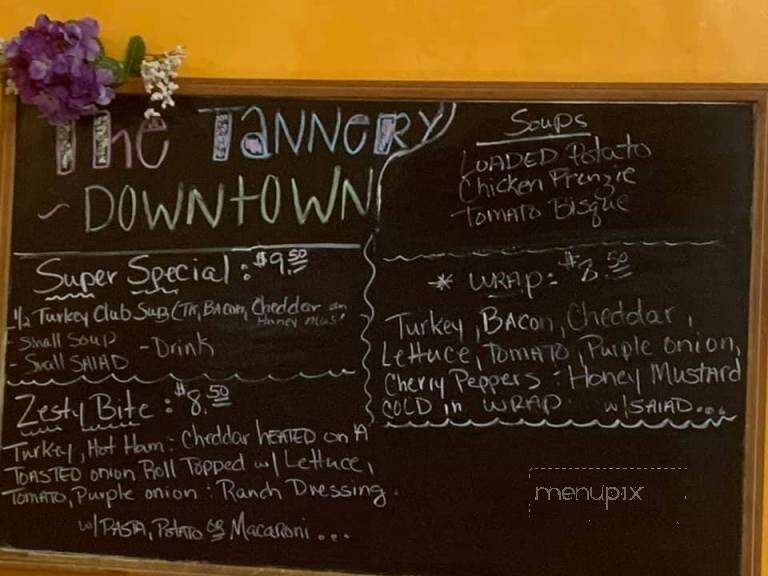 The TANNERY
~ DOWNtOWN
Super Special: $9.50
- 1/2 Turkey Club Sub (Tky, BACON, Cheddar
Honey Mus
- Small Soup
- Small SALAD
- Drink
Zesty Bite: $8.50
Turkey, Hot Ham: Cheddar HEATED on A
TOASTED onion Roll Topped w/ Lettuce,
TOMATO, Purple onion: Ranch Dressing.
w/ PASTA, POTATO OR Macaroni...
Soups
LOADED Potato
Chicken Frenzie
Tomato Bisque
* WRAP: $8.50
Turkey, BACON, Cheddar,
Lettuce, TOMATO, Purple onion,
Cherry Peppers: Honey Mustard
COLD in WRAP w/ SALAD...
menupix